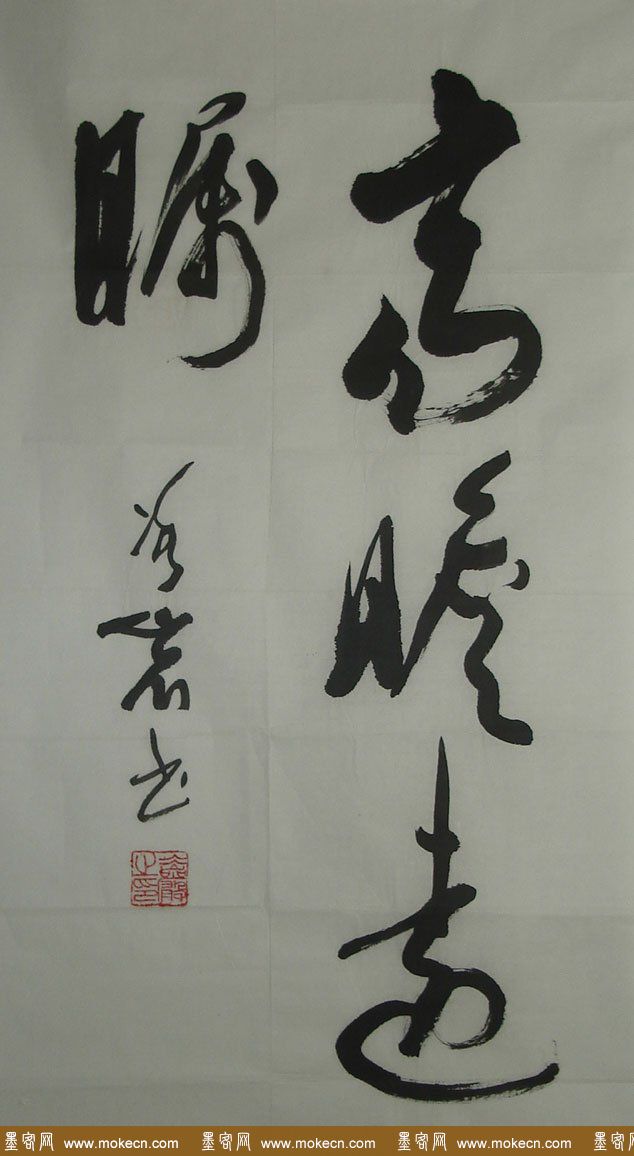 高瞻远
瞩
岩书
墨客网 www.mokecn.com 墨客网 www.mokecn.com 墨客网 www.mokecn.com